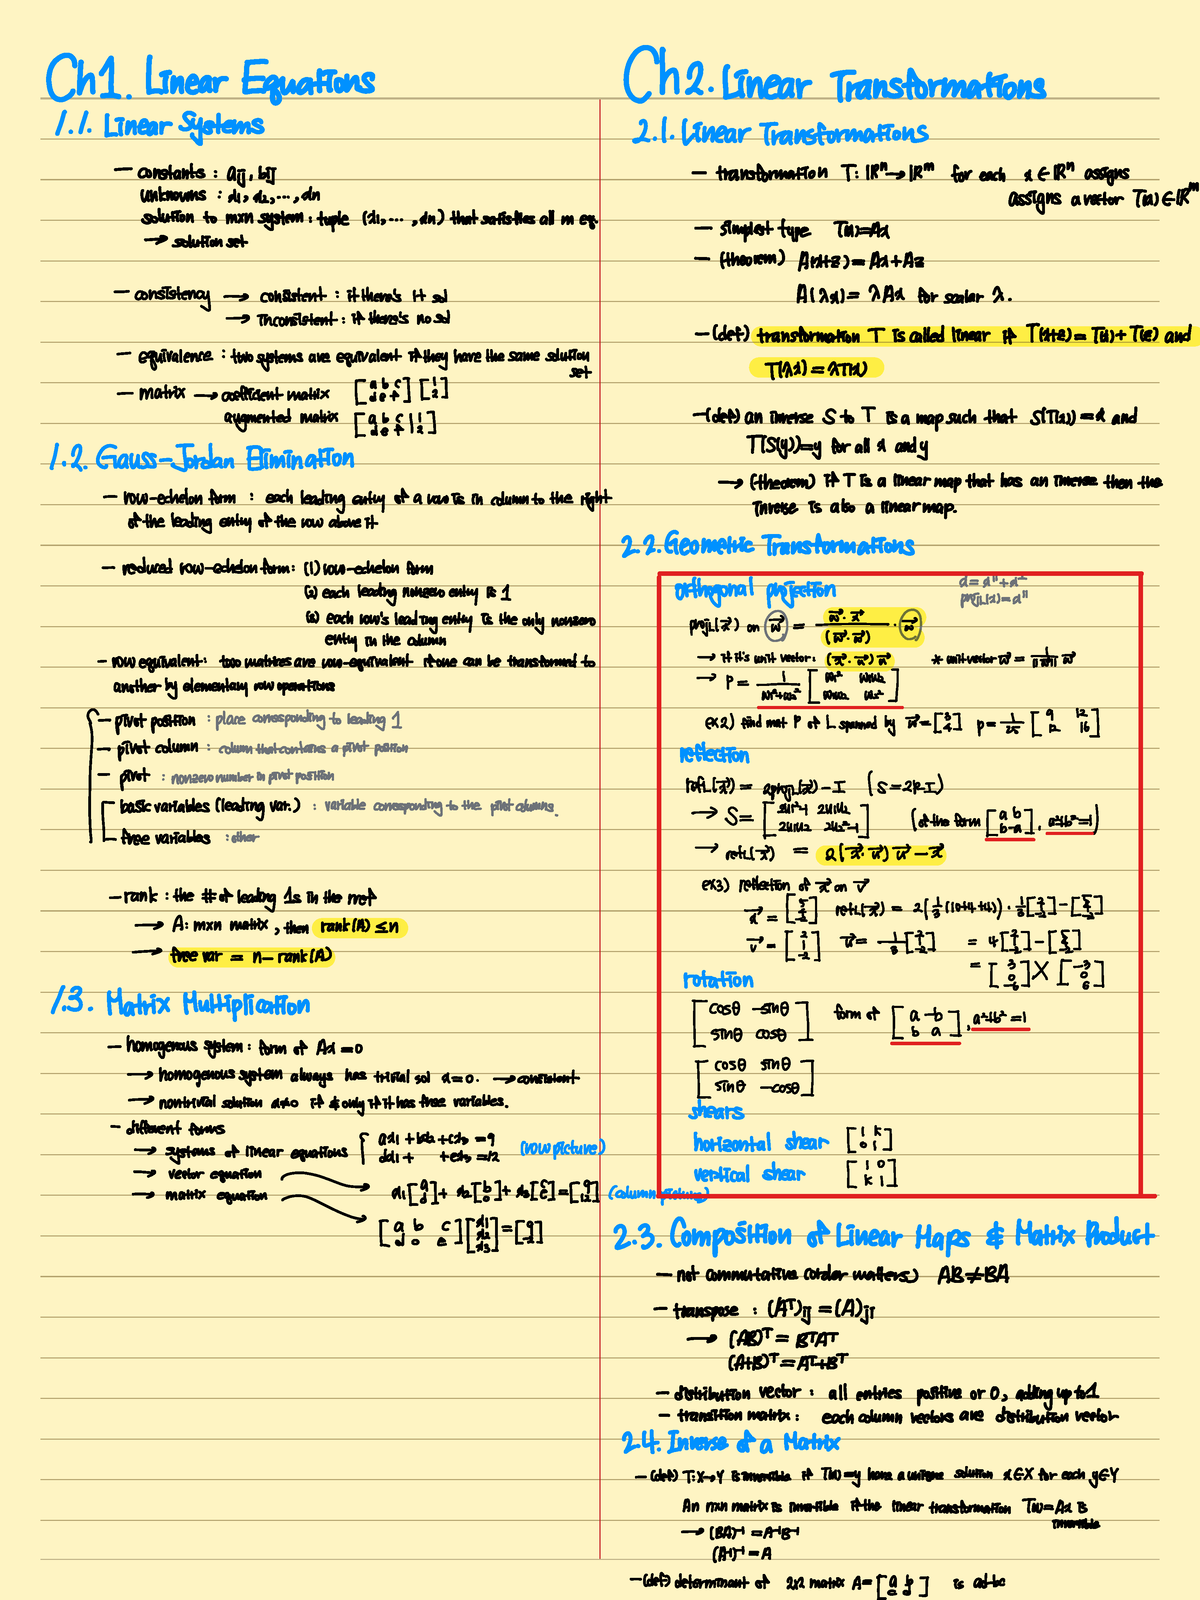 Ch1. Linear Equations
1.1. Linear Systems
– constants : aij, bij
unknowns : x1, x2, ..., xn
solution to mxn system : tuple (x1, ... , xn) that satisfies all m eq.
→ solution set
– consistency → consistent : if there's 1+ sol
→ inconsistent : if there's no sol
– equivalence : two systems are equivalent if they have the same solution
set
– matrix → coefficient matrix [a b c / d e f] [1 / 2]
augmented matrix [a b c | 1 / d e f | 2]
1.2. Gauss-Jordan Elimination
– row-echelon form : each leading entry of a row is in column to the right
of the leading entry of the row above it
– reduced row-echelon form : (1) row-echelon form
(2) each leading nonzero entry is 1
(3) each row's leading entry is the only nonzero
entry in the column
– row equivalent : two matrices are row-equivalent if one can be transformed to
another by elementary row operations
– pivot position : place corresponding to leading 1
– pivot column : column that contains a pivot position
– pivot : nonzero number in pivot position
basic variables (leading var.) : variable corresponding to the pivot columns.
free variables : other
– rank : the # of leading 1s in the rref
→ A : mxn matrix, then rank(A) ≤ n
→ free var = n – rank(A)
1.3. Matrix Multiplication
– homogenous system : form of Ax = 0
→ homogenous system always has trivial sol x=0. → consistent
→ nontrivial solution x≠0 if & only if it has free variables.
– different forms
→ systems of linear equations { ax1 + bx2 + cx3 = 9 (row picture)
dx1 + + ex3 = 12
→ vector equation
→ matrix equation
x1 [a / d] + x2 [b / 0] + x3 [c / e] = [9 / 12] (column picture)
[a b c / d 0 e] [x1 / x2 / x3] = [9 / 12]
Ch2. Linear Transformations
2.1. Linear Transformations
– transformation T : IR^n → IR^m for each x ∈ IR^n assigns
assigns a vector T(x) ∈ IR^m
– simplest type T(x)=Ax
– (theorem) A(x+z) = Ax + Az
A(λx) = λAx for scalar λ.
– (def) transformation T is called linear if T(x+z) = T(x) + T(z) and
T(λx) = λT(x)
– (def) an inverse S to T is a map such that S(T(x)) = x and
T(S(y))=y for all x and y
→ (theorem) if T is a linear map that has an inverse then the
inverse is also a linear map.
2.2. Geometric Transformations
orthogonal projection
x = x^∥ + x^⊥
proj_L(x) = x^∥
proj_L(x⃗) on w⃗ = (w⃗ · x⃗)/(w⃗ · w⃗) · w⃗
→ if it's unit vector : (x⃗ · u⃗) u⃗ * unit vector u⃗ = 1/||w⃗|| w⃗
→ P = 1/(w1²+w2²) [w1² w1w2 / w1w2 w2²]
ex2) find mat P of L spanned by w⃗ = [3 / 4] P = 1/25 [9 12 / 12 16]
reflection
ref_L(x⃗) = 2proj_L(x⃗) – I (S = 2P-I)
→ S = [2u1²-1 2u1u2 / 2u1u2 2u2²-1] (of the form [a b / b -a], a²+b²=1)
→ ref_L(x⃗) = 2(x⃗ · u⃗) u⃗ – x⃗
ex3) reflection of x⃗ on v⃗
x⃗ = [5 / 4 / -2] ref_L(x⃗) = 2(1/3(10+4+4)) · 1/3 [2 / 1 / -2] – [5 / 4 / -2]
v⃗ = [2 / 1 / -2] u⃗ = 1/3 [2 / 1 / -2] = 4 [2 / 1 / -2] – [5 / 4 / -2]
= [3 / 0 / -6] X [-3 / 0 / 6]
rotation
[cosθ -sinθ / sinθ cosθ] form of [a -b / b a], a²+b²=1
[cosθ sinθ / sinθ -cosθ]
shears
horizontal shear [1 k / 0 1]
vertical shear [1 0 / k 1]
2.3. Composition of Linear Maps & Matrix Product
– not commutative (order matters) AB ≠ BA
– transpose : (A^T)ij = (A)ji
→ (AB)^T = B^T A^T
(A+B)^T = A^T + B^T
– distribution vector : all entries positive or 0, adding up to 1
– transition matrix : each column vectors are distribution vector
2.4. Inverse of a Matrix
– (def) T: X→Y is invertible if T(x)=y have a unique solution x∈X for each y∈Y
An nxn matrix is invertible if the linear transformation T(x)=Ax is
invertible
→ (BA)^-1 = A^-1 B^-1
(A^-1)^-1 = A
– (def) determinant of 2x2 matrix A = [a b / c d] is ad-bc